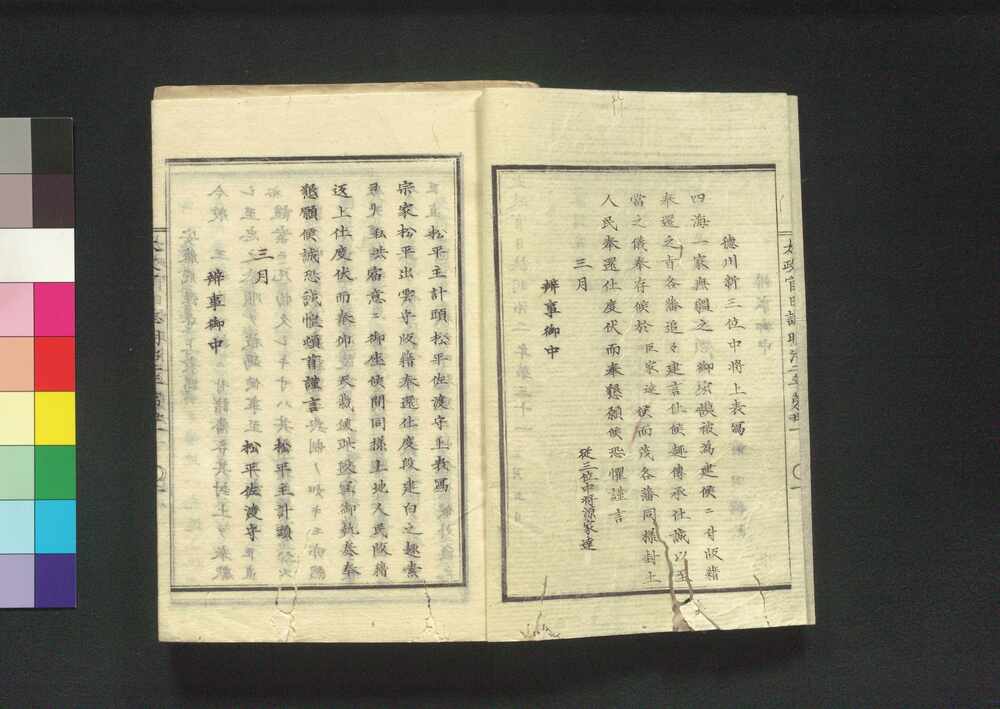 徳川新三位中将上表冩
四海一家無疆之御宏謨被為建候ニ付版籍
奉還之旨各藩追々建言仕候趣傳承仕誠以至
當之儀奉存候於臣家達候而茂各藩同様封土
人民奉還仕度伏而奉懇願候恐懼謹言
従三位中将源家達
三月
辨事御中
松平主計頭松平佐渡守上表冩
宗家松平出雲守版籍奉還仕度段建白之趣素
御座候間同様土地人民版籍
返上仕度伏而奉仰天裁候此段宜御執奏奉
懇願候誠恐誠惶頓首謹言
松平主計頭
三月
松平佐渡守
辨事御中